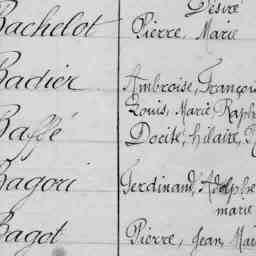 Désiré
Bachelot Pierre, Marie
Badier Ambroise, François
Louis, Marie, Raph
Baffé Docité, Hilaire, R
Bagori Ferdinand, Adolphe
marie
Bagot Pierre, Jean, Mari